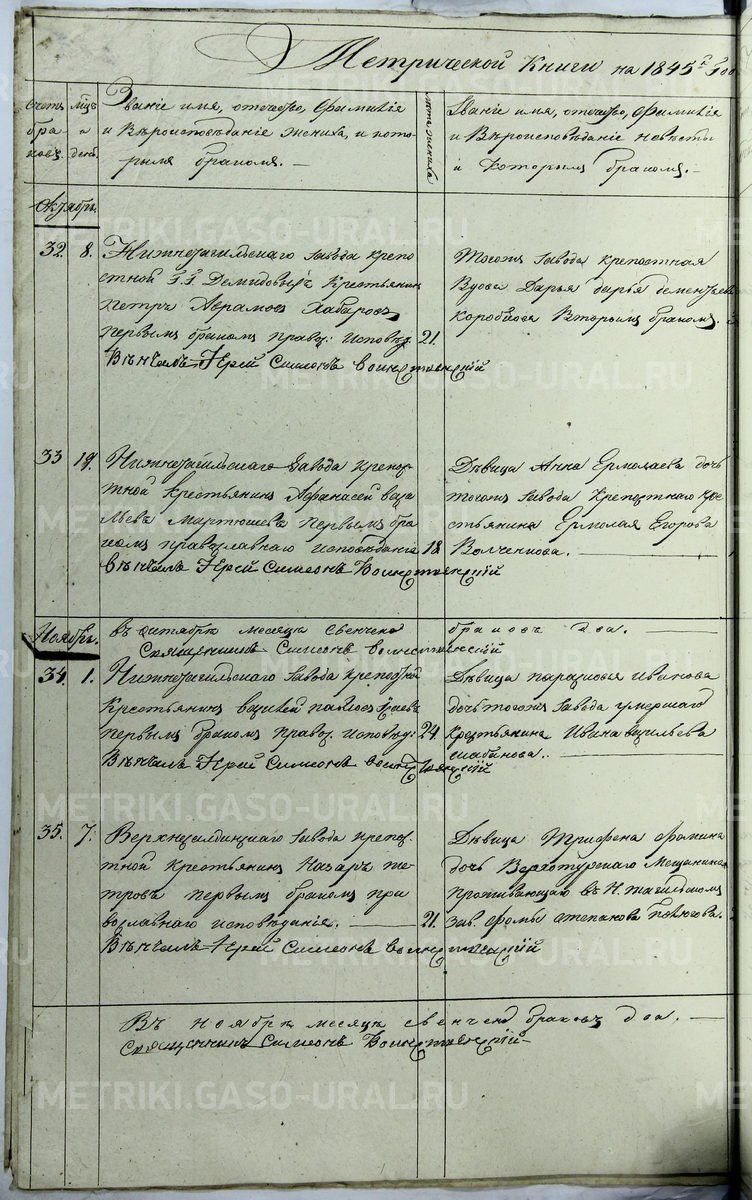 Метрической Книги на 1845й Год
Счетъ браковъ.
Мцъ и день.
Званіе имя, отечество, Фамилія
и Вѣроисповѣданіе жениха, и кото-
рымъ бракомъ. —
лѣта жениха
Званіе имя, отечество, Фамилія
и Вѣроисповѣданіе невѣсты
и которымъ бракомъ. —
Октябрь.
32. 8. Нижнетагильскаго завода крепо
стной Г.Г. Демидовыхъ Крестьянин
Петръ Аврамовъ Хабаровъ
первымъ бракомъ правос: исповѣд. 21.
Вѣнчалъ Іерей Симеонъ
Тогожъ завода крепостная
Вдова Дарья Дементьева
Коробцова Вторымъ бракомъ.
33 19. Нижнетагильскаго Завода крепос
тной Крестьянинъ Афанасей Васи
льевъ Мартюшевъ первымъ бра
комъ православнаго исповѣданія 18.
Вѣнчалъ Іерей Симеонъ
Дѣвица Анна Ермолаева дочь
тогожъ завода Крепостнаго Кре
стьянина Ермолая Егорова
Волченкова. —
Ноябрь.
въ октябрѣ месяцѣ свенчено браковъ два. —
Священникъ Симеонъ
34. 1. Нижнетагильскаго завода крепостной
Крестьянинъ Василей Павловъ
первымъ бракомъ правос: исповѣд: 24
Вѣнчалъ Іерей Симеонъ
Дѣвица Парасковья Иванова
дочь тогожъ завода умершаго
крестьянина Ивана Васильева
—
35. 7. Верхнесалдинскаго завода крепос
тной Крестьянинъ Назаръ Пе
тровъ первымъ бракомъ пра
вославнаго исповѣданія. — 21.
Вѣнчалъ Іерей Симеонъ
Дѣвица Трифена Фомина
дочь Верхотурскаго Мещанина
проживающаго въ Н. тагильскомъ
зав. Фомы Степанова
Въ ноябрѣ месяцѣ свенчено браковъ два. —
Священникъ Симеонъ
METRIKI.GASO-URAL.RU